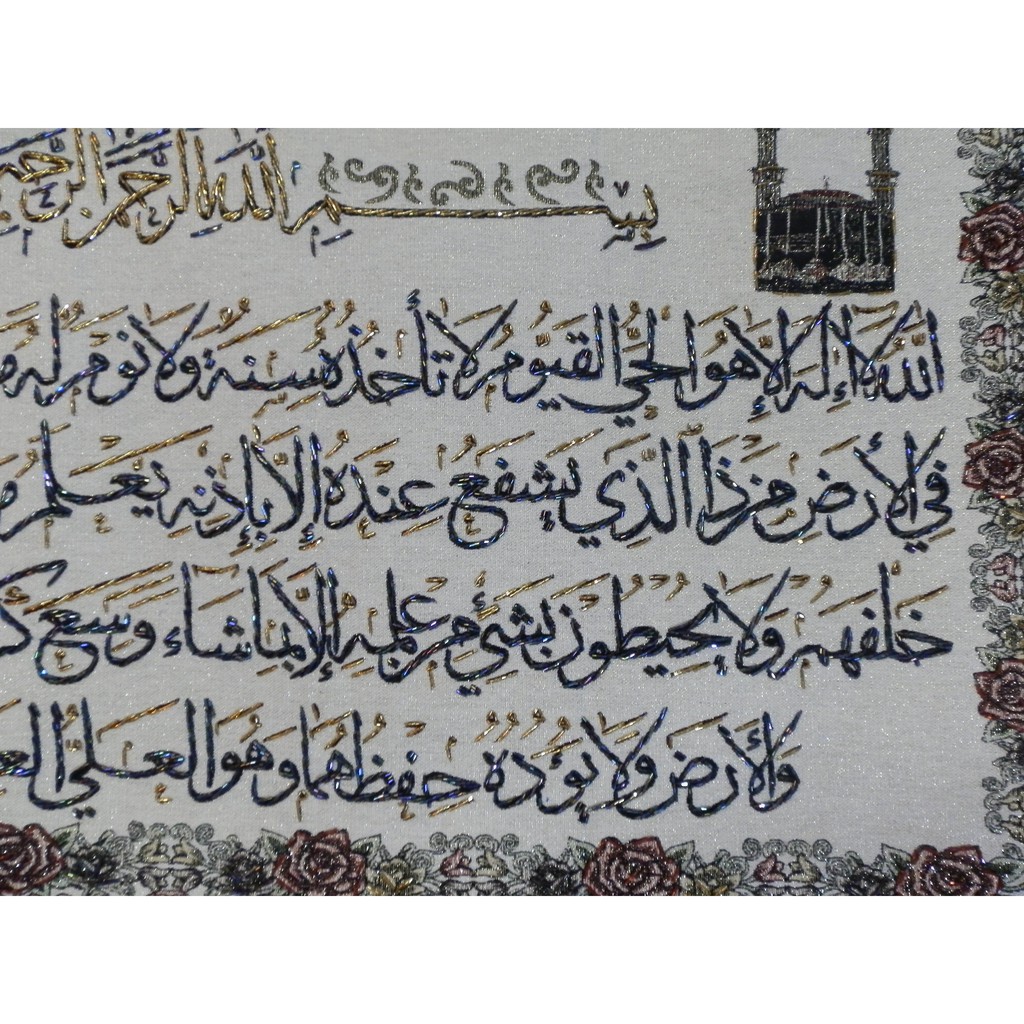 بِسْمِ اللَّهِ الرَّحْمَنِ الرَّحِيمِ
اللَّهُ لَا إِلَهَ إِلَّا هُوَ الْحَيُّ الْقَيُّومُ لَا تَأْخُذُهُ سِنَةٌ وَلَا نَوْمٌ لَهُ
فِي الْأَرْضِ مَنْ ذَا الَّذِي يَشْفَعُ عِنْدَهُ إِلَّا بِإِذْنِهِ يَعْلَمُ
خَلْفَهُمْ وَلَا يُحِيطُونَ بِشَيْءٍ مِنْ عِلْمِهِ إِلَّا بِمَا شَاءَ وَسِعَ
وَالْأَرْضَ وَلَا يَئُودُهُ حِفْظُهُمَا وَهُوَ الْعَلِيُّ